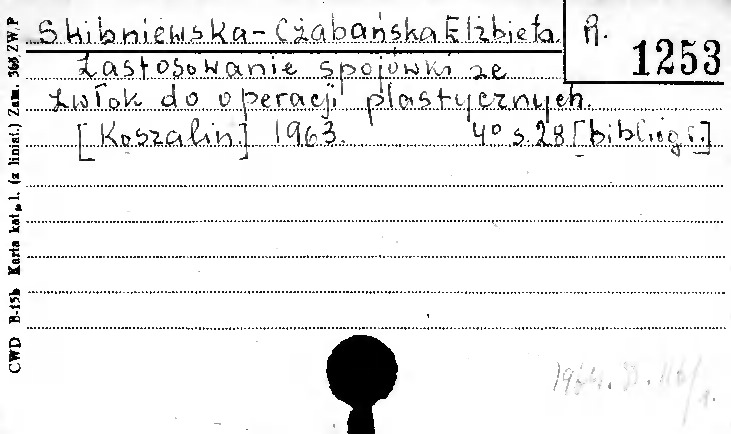 Skibniewska-Czabańska Elżbieta
R. 1253
Zastosowanie spojówki ze
zwłok do operacji plastycznych.
[Koszalin.] 1963. 4° s. 28 [bibliogr.]
CWD B-15b Karta kat. l. (z liniat.) Zam. ZW.P